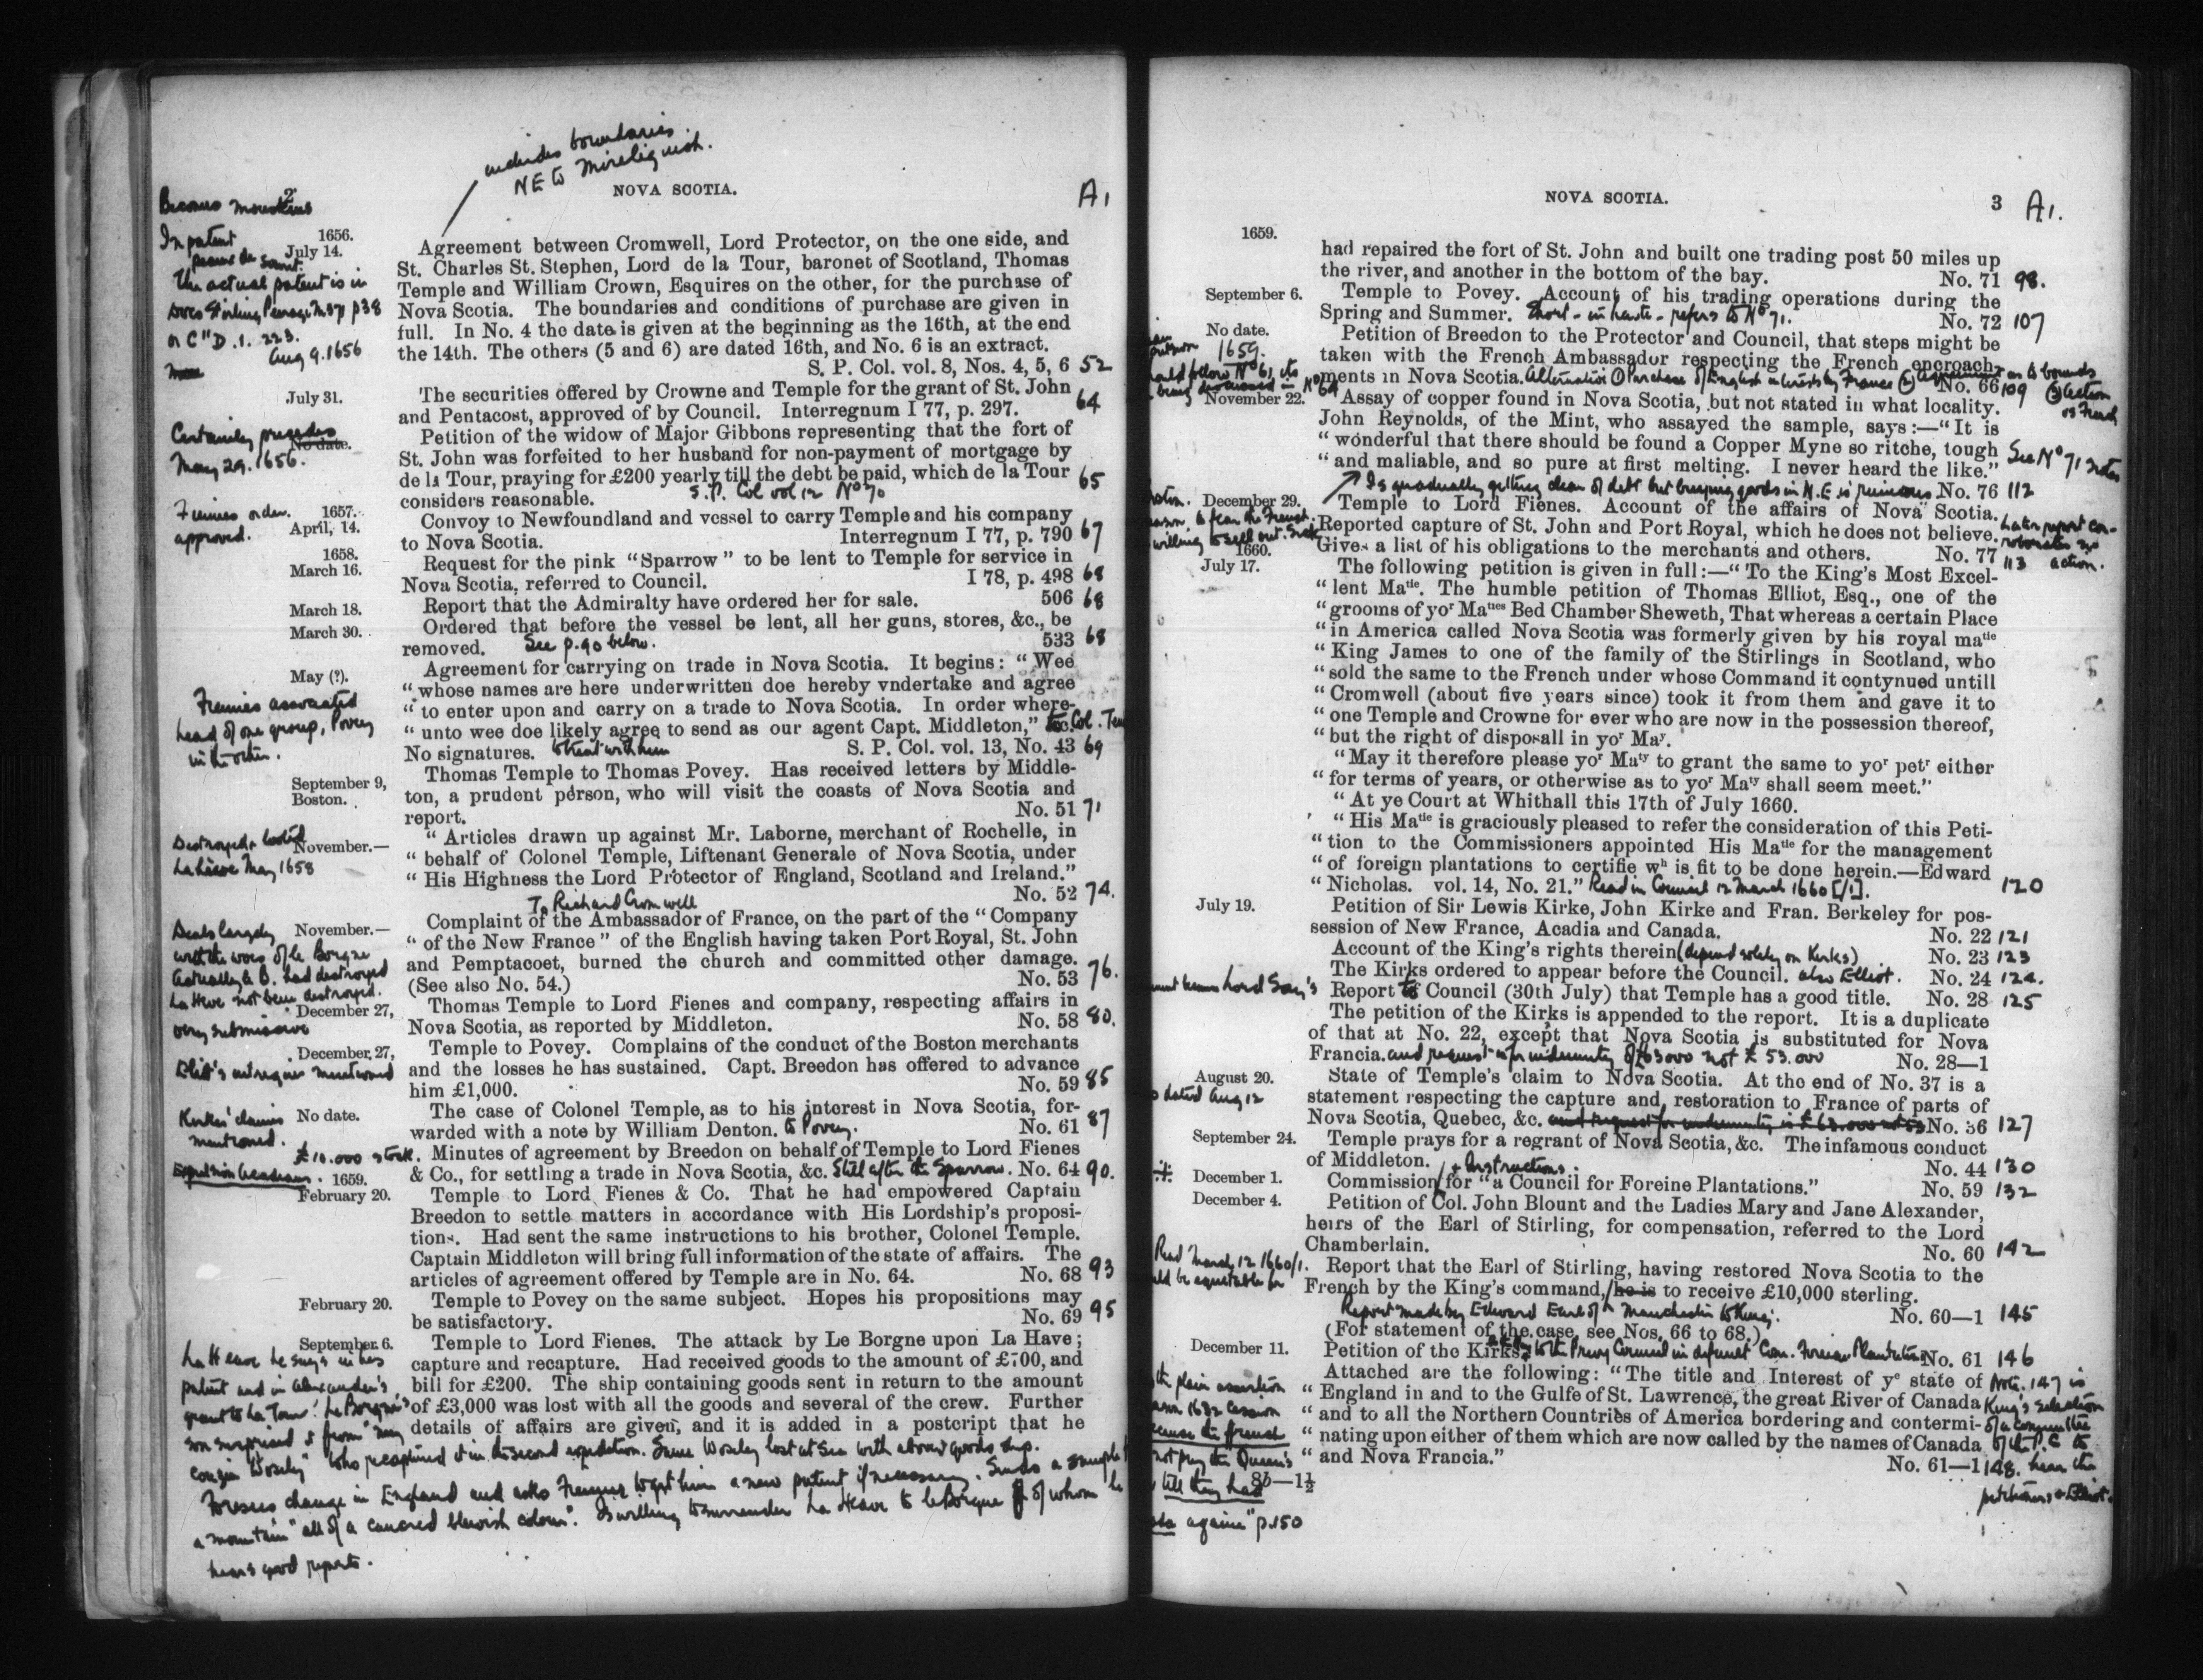 includes boundaries
NE to Mirelig uesh.
2
NOVA SCOTIA.
A1
Becomes
In patent
1656.
July 14.
The actual patent is in
p 38
or C "D. 1. 223.
Aug 9. 1656
Agreement between Cromwell, Lord Protector, on the one side, and
St. Charles St. Stephen, Lord de la Tour, baronet of Scotland, Thomas
Temple and William Crown, Esquires on the other, for the purchase of
Nova Scotia. The boundaries and conditions of purchase are given in
full. In No. 4 the date is given at the beginning as the 16th, at the end
the 14th. The others (5 and 6) are dated 16th, and No. 6 is an extract.
S. P. Col. vol. 8, Nos. 4, 5, 6 52
July 31.
The securities offered by Crowne and Temple for the grant of St. John
and Pentacost, approved of by Council. Interregnum I 77, p. 297. 64
Certainly precedes
No date.
May 29. 1656.
Petition of the widow of Major Gibbons representing that the fort of
St. John was forfeited to her husband for non-payment of mortgage by
de la Tour, praying for £200 yearly till the debt be paid, which de la Tour 65
considers reasonable. S. P. Col vol 12 No 70
Fiennes order.
approved.
1657.
April, 14.
Convoy to Newfoundland and vessel to carry Temple and his company
to Nova Scotia. Interregnum I 77, p. 790 67
1658.
March 16.
Request for the pink "Sparrow" to be lent to Temple for service in
Nova Scotia, referred to Council. I 78, p. 498 68
March 18.
Report that the Admiralty have ordered her for sale. 506 68
March 30.
Ordered that before the vessel be lent, all her guns, stores, &c., be
removed. See p. 90 below. 533 68
May (?).
Fiennes associated
head of one group, Povey
in the other.
Agreement for carrying on trade in Nova Scotia. It begins: "Wee
"whose names are here underwritten doe hereby vndertake and agree
"to enter upon and carry on a trade to Nova Scotia. In order where-
"unto wee doe likely agree to send as our agent Capt. Middleton," &c. to Col. Tem
No signatures. to treat with him S. P. Col. vol. 13, No. 43 69
September 9,
Boston.
Thomas Temple to Thomas Povey. Has received letters by Middle-
ton, a prudent person, who will visit the coasts of Nova Scotia and
report. No. 51 71
Destroyed & looted
November.—
La Heve May 1658
"Articles drawn up against Mr. Laborne, merchant of Rochelle, in
"behalf of Colonel Temple, Liftenant Generale of Nova Scotia, under
"His Highness the Lord Protector of England, Scotland and Ireland."
No. 52 74.
To Richard Cromwell
Deals largely
November.—
with the woes of le Borgne
Actually le B. had destroyed
La Heve not been destroyed.
Complaint of the Ambassador of France, on the part of the "Company
"of the New France" of the English having taken Port Royal, St. John
and Pemptacoet, burned the church and committed other damage.
(See also No. 54.) No. 53 76.
December 27,
very submissive
Thomas Temple to Lord Fienes and company, respecting affairs in
Nova Scotia, as reported by Middleton. No. 58 80.
December, 27,
Elliot's intrigues mentioned
Temple to Povey. Complains of the conduct of the Boston merchants
and the losses he has sustained. Capt. Breedon has offered to advance
him £1,000. No. 59 85
Kirkes' claims
No date.
mentioned.
The case of Colonel Temple, as to his interest in Nova Scotia, for-
warded with a note by William Denton. to Povey. No. 61 87
£10.000 stock.
Minutes of agreement by Breedon on behalf of Temple to Lord Fienes
& Co., for settling a trade in Nova Scotia, &c. Still after the Sparrow. No. 64 90.
1659.
February 20.
Temple to Lord Fienes & Co. That he had empowered Captain
Breedon to settle matters in accordance with His Lordship's proposi-
tions. Had sent the same instructions to his brother, Colonel Temple.
Captain Middleton will bring full information of the state of affairs. The
articles of agreement offered by Temple are in No. 64. No. 68 93
February 20.
Temple to Povey on the same subject. Hopes his propositions may
be satisfactory. No. 69 95
September 6.
Temple to Lord Fienes. The attack by Le Borgne upon La Have;
capture and recapture. Had received goods to the amount of £700, and
bill for £200. The ship containing goods sent in return to the amount
of £3,000 was lost with all the goods and several of the crew. Further
details of affairs are given, and it is added in a postcript that he
La Heave he says in his
patent and in Alexander's
grant to La Tour. Le Borgne's
son surprised it from "my
cousin Wosely" who recaptured it in his second expedition. Same Wosely lost at sea with above goods ship.
Foresees change in England and asks Fiennes to get him a new patent if necessary. Sends a sample
a mountain "all of a cancred blewish colour". Is willing to surrender La Heave to le Borgne of whom he
hears good reports.
NOVA SCOTIA.
3 A1.
1659.
had repaired the fort of St. John and built one trading post 50 miles up
the river, and another in the bottom of the bay. No. 71 98.
September 6.
Temple to Povey. Account of his trading operations during the
Spring and Summer. Short - in haste - refers to No 71. No. 72 107
No date.
1659.
Petition of Breedon to the Protector and Council, that steps might be
taken with the French Ambassador respecting the French encroach-
ments in Nova Scotia. Alternative ① Purchase of English interests by France ② agreement as to bounds No. 66 109 ③ action
vs French
should follow No 61, its
being discussed in No 64
November 22.
Assay of copper found in Nova Scotia, but not stated in what locality.
John Reynolds, of the Mint, who assayed the sample, says:—"It is
"wonderful that there should be found a Copper Myne so ritche, tough
"and maliable, and so pure at first melting. I never heard the like."
See No 71 note
No. 76 112
Is gradually getting clear of debt but buying goods in N.E is ruinous
December 29.
to fear the French.
willing to sell out.
Temple to Lord Fienes. Account of the affairs of Nova Scotia.
Reported capture of St. John and Port Royal, which he does not believe.
Gives a list of his obligations to the merchants and others. No. 77 113
Later report cor-
roborates no
action.
1660.
July 17.
The following petition is given in full:—"To the King's Most Excel-
"lent Matie. The humble petition of Thomas Elliot, Esq., one of the
"grooms of yor Maties Bed Chamber Sheweth, That whereas a certain Place
"in America called Nova Scotia was formerly given by his royal matie
"King James to one of the family of the Stirlings in Scotland, who
"sold the same to the French under whose Command it contynued untill
"Cromwell (about five years since) took it from them and gave it to
"one Temple and Crowne for ever who are now in the possession thereof,
"but the right of disposall in yor May.
"May it therefore please yor Maty to grant the same to yor petr either
"for terms of years, or otherwise as to yor Maty shall seem meet."
"At ye Court at Whithall this 17th of July 1660.
"His Matie is graciously pleased to refer the consideration of this Peti-
"tion to the Commissioners appointed His Matie for the management
"of foreign plantations to certifie wh is fit to be done herein.—Edward
"Nicholas. vol. 14, No. 21." Read in Council 12 March 1660 [/1]. 120
July 19.
Petition of Sir Lewis Kirke, John Kirke and Fran. Berkeley for pos-
session of New France, Acadia and Canada. No. 22 121
Account of the King's rights therein (depend solely on Kirks) No. 23 123
The Kirks ordered to appear before the Council. also Elliot. No. 24 124.
Lord Say's
Report to Council (30th July) that Temple has a good title. No. 28 125
The petition of the Kirks is appended to the report. It is a duplicate
of that at No. 22, except that Nova Scotia is substituted for Nova
Francia. and request is for indemnity of £63000 not £53.000 No. 28—1
August 20.
dated Aug 12
State of Temple's claim to Nova Scotia. At the end of No. 37 is a
statement respecting the capture and restoration to France of parts of
Nova Scotia, Quebec, &c. and request for indemnity is £63.000 not 53 No. 36 127
September 24.
Temple prays for a regrant of Nova Scotia, &c. The infamous conduct
of Middleton. No. 44 130
+ Instructions.
December 1.
Commission for "a Council for Foreine Plantations." No. 59 132
December 4.
Petition of Col. John Blount and the Ladies Mary and Jane Alexander,
heirs of the Earl of Stirling, for compensation, referred to the Lord
Chamberlain. No. 60 142
Read March 12 1660/1.
Report that the Earl of Stirling, having restored Nova Scotia to the
French by the King's command, he is to receive £10,000 sterling.
Report made by Edward Earl of Manchester to King. No. 60—1 145
(For statement of the case, see Nos. 66 to 68.)
December 11.
Petition of the Kirks to the Privy Council in defunct Com. Foreign Plantations No. 61 146
Attached are the following: "The title and Interest of ye state of
"England in and to the Gulfe of St. Lawrence, the great River of Canada
"and to all the Northern Countries of America bordering and contermi-
"nating upon either of them which are now called by the names of Canada
"and Nova Francia."
No. 61—1 148.
Note. 147 is
King's selection
of a committee
of the P.C to
hear the
petitioners & Elliot.
plain assertion
1632 cession
because the French
not pay the Queen's
till they had
againe" p. 150
8b—1½